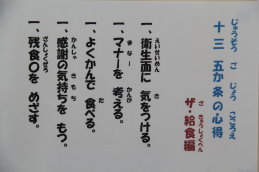 十三 五か条の心得
ザ・給食編
一、衛生面に 気をつける。
一、マナーを 考える。
一、よくかんで 食べる。
一、感謝の気持ちを もつ。
一、残食〇を めざす。